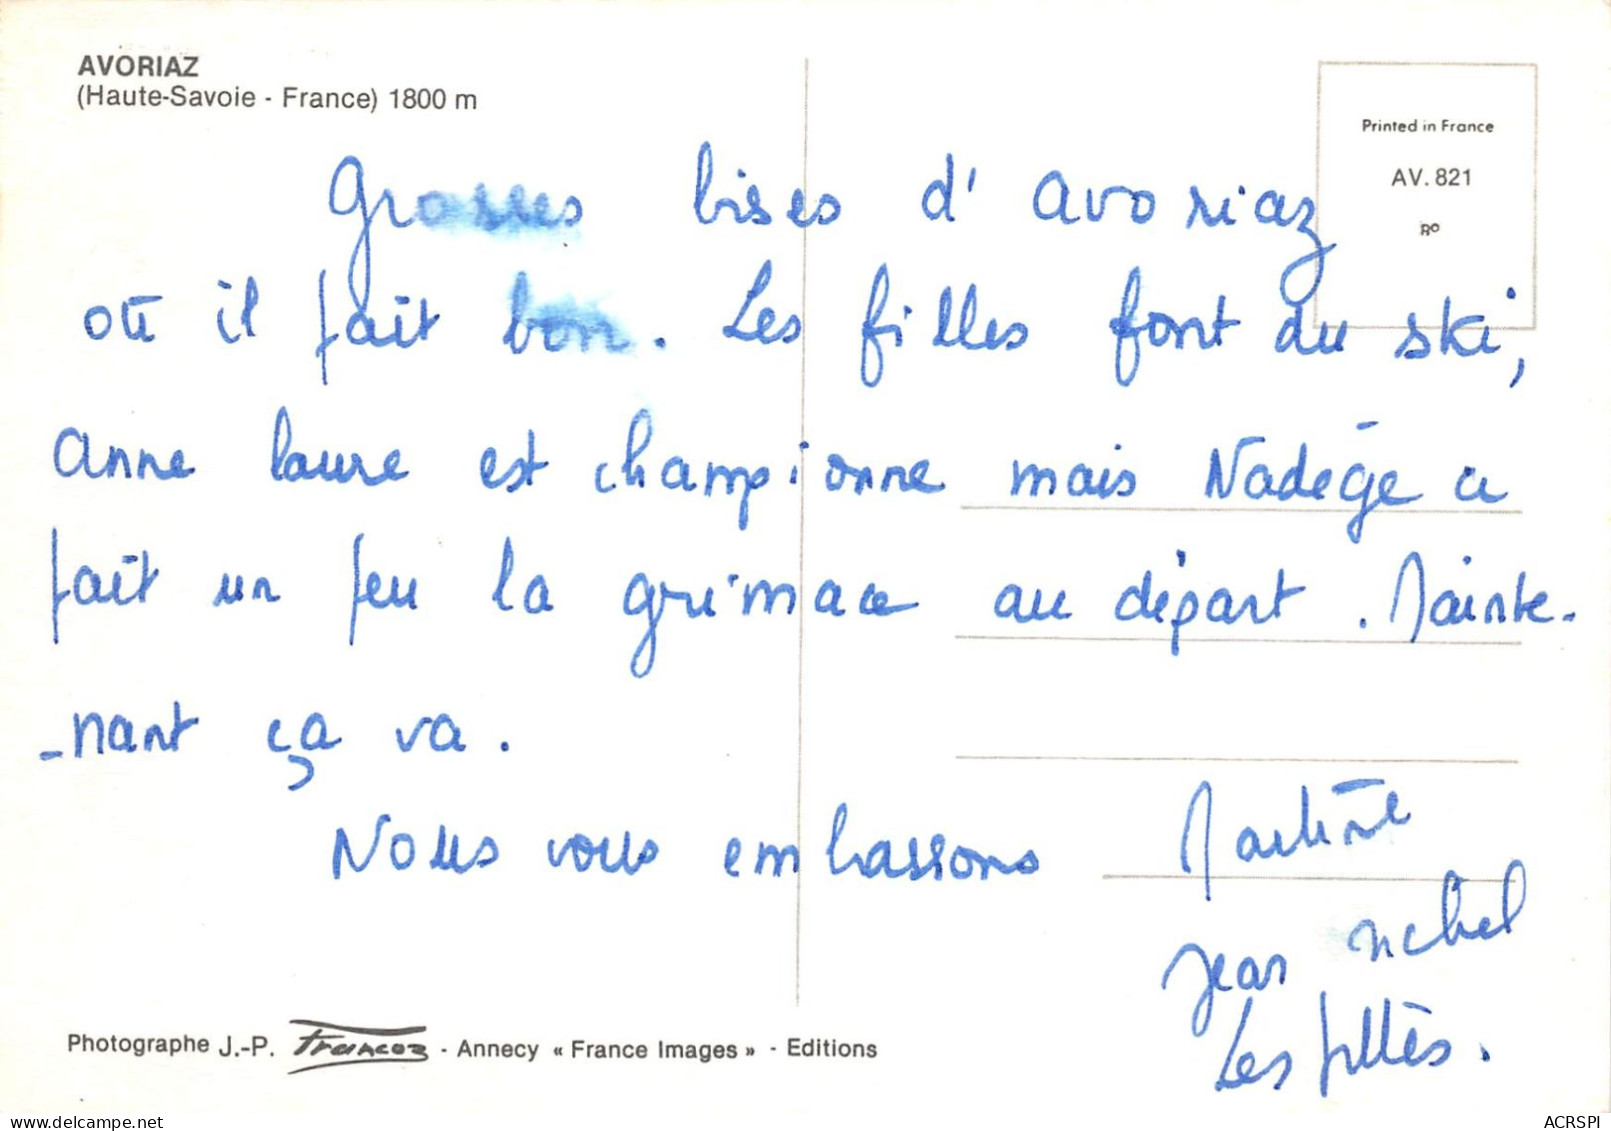 AVORIAZ
(Haute-Savoie - France) 1800 m
Printed in France
AV. 821
Grosses bises d'avoriaz
où il fait bon. Les filles font du ski,
anne laure est championne mais Nadège a
fait un peu la grimace au départ. Mainte-
-nant ça va.
Nous vous embrassons Martine
jean michel
Les filles.
Photographe J.-P. Francoz - Annecy « France Images » - Editions
ACRSPI